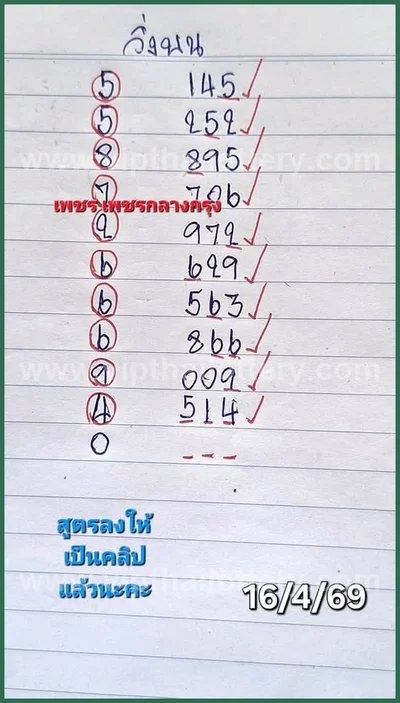 วิ่งบน
5 145 ✓
5 252 ✓
8 895 ✓
7 706 ✓
เพชร เพชรกลางกรุง
2 972 ✓
6 629 ✓
6 563 ✓
6 866 ✓
9 009 ✓
4 514 ✓
0 _ _ _
สูตรลงให้
เป็นคลิป
แล้วนะคะ
16/4/69